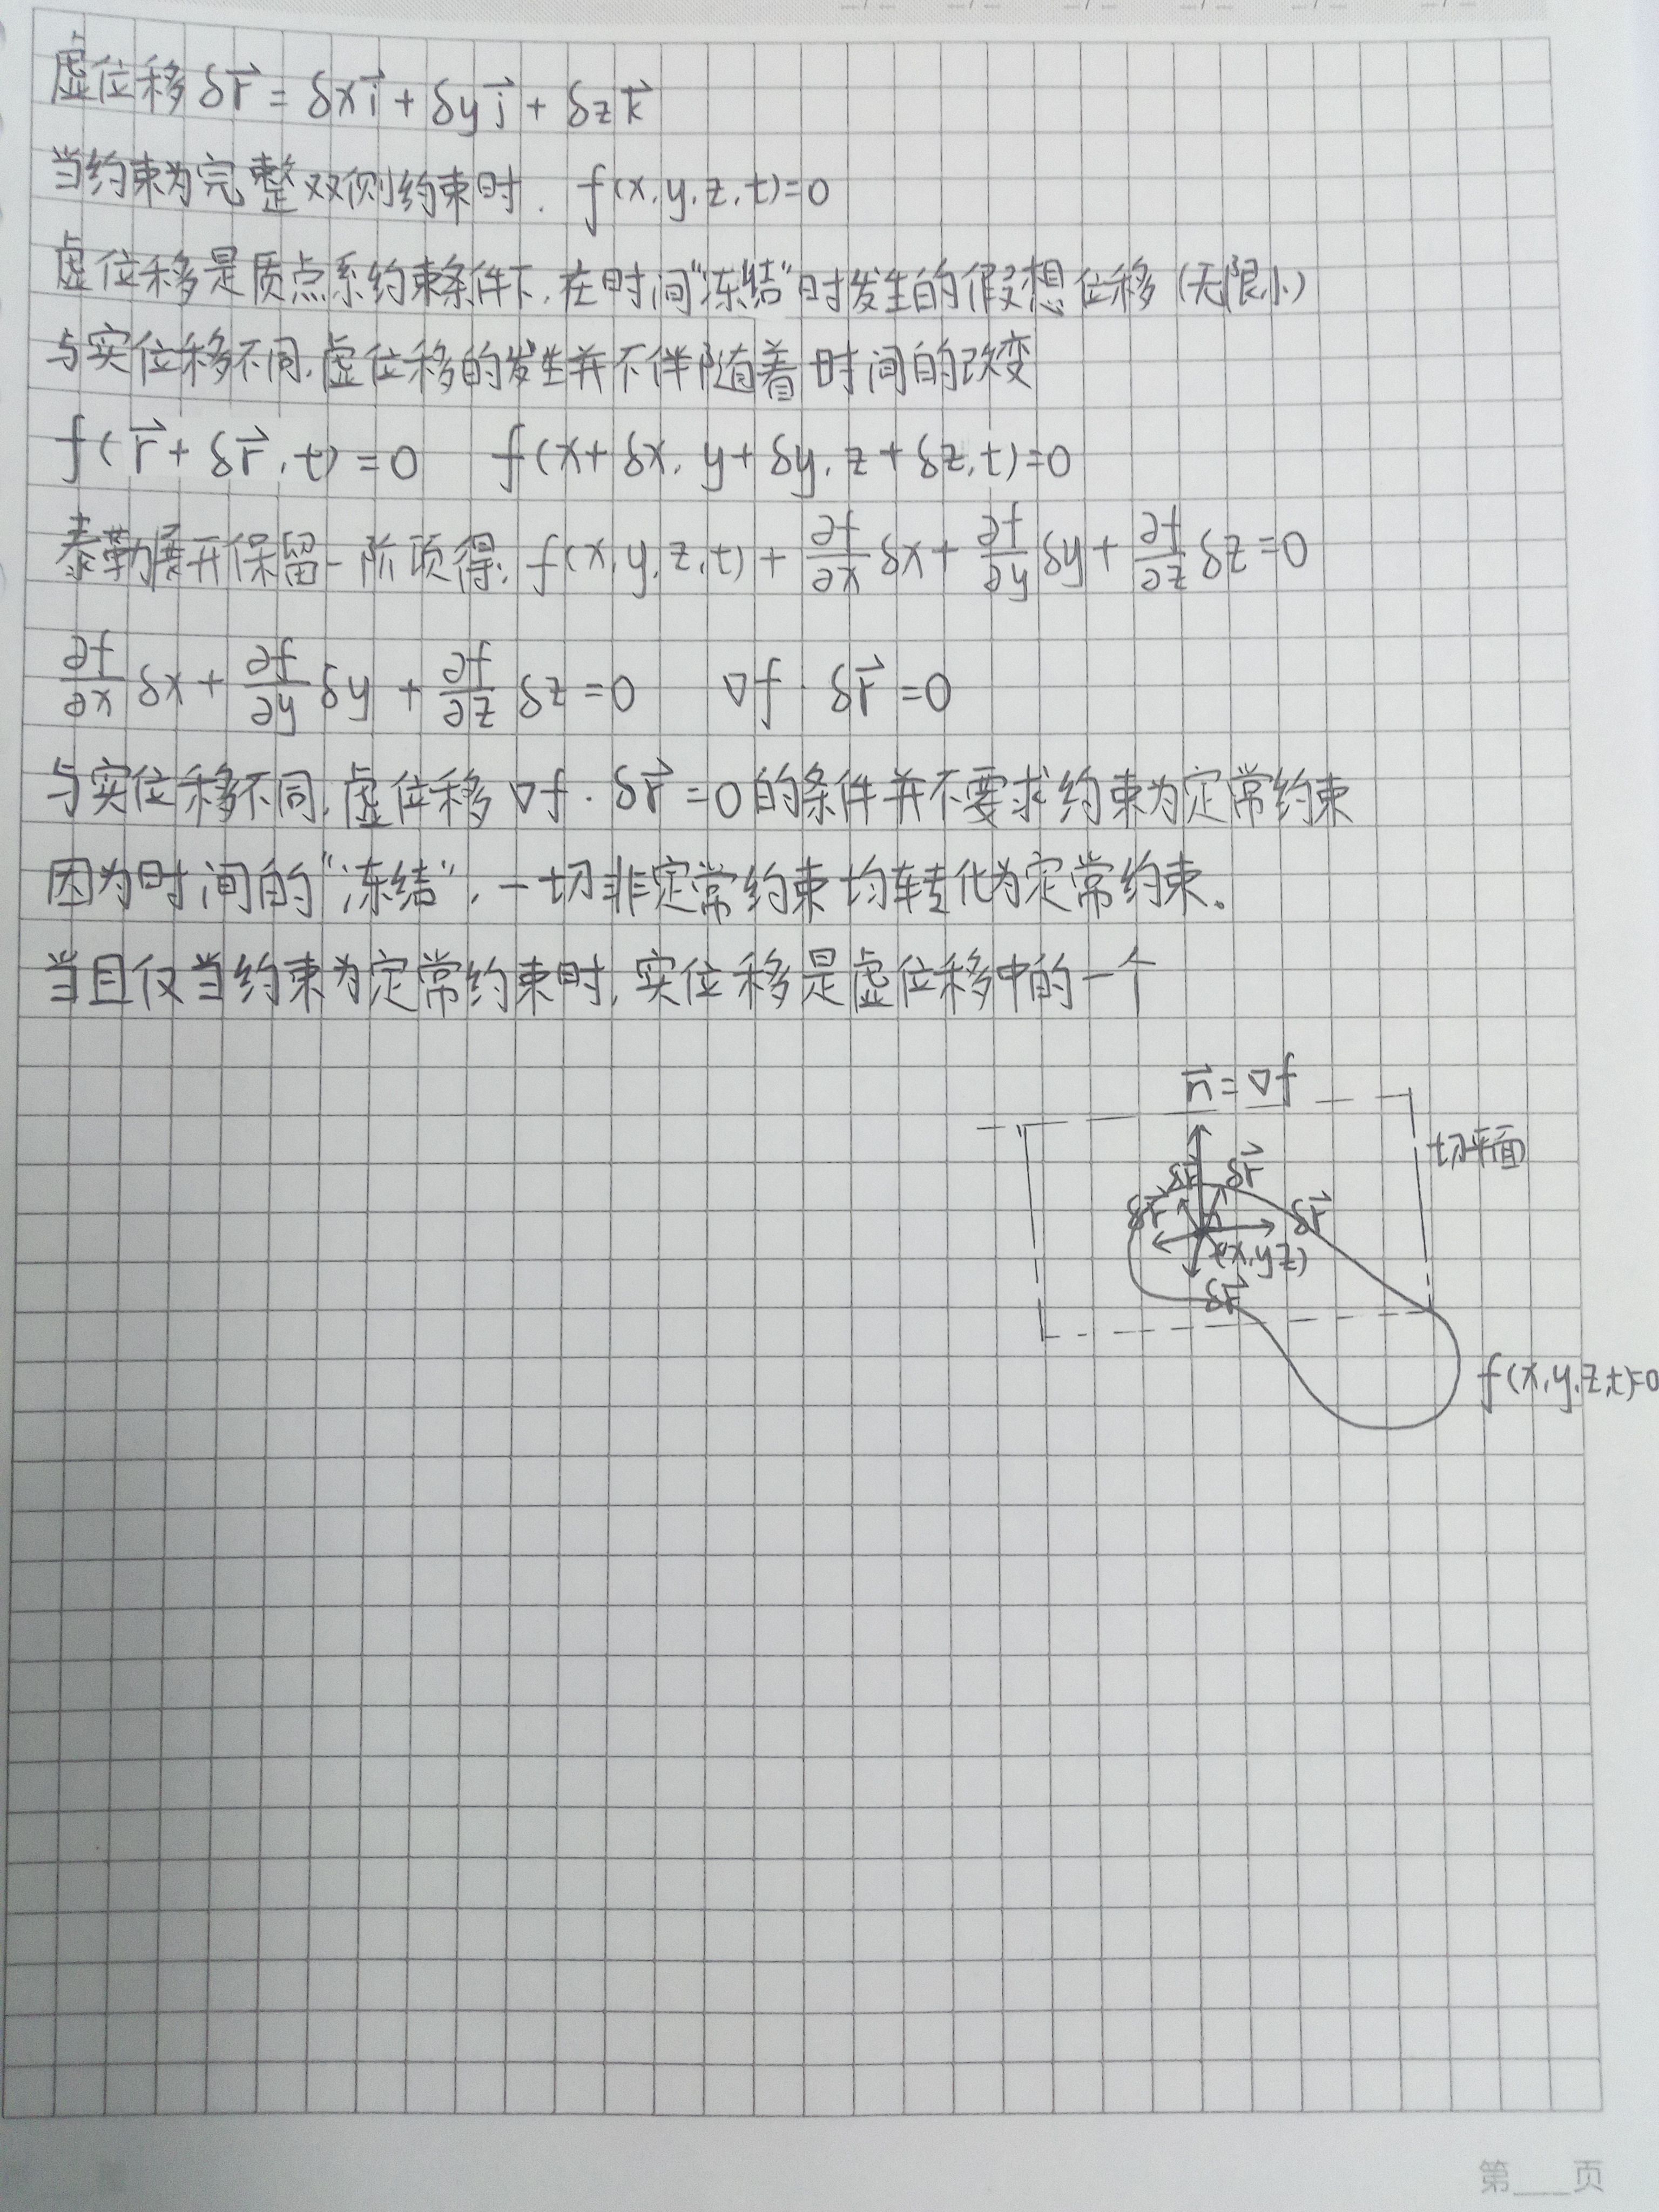 虚位移 δr⃗ = δx i⃗ + δy j⃗ + δz k⃗
当约束为完整双侧约束时. f(x,y,z,t)=0
虚位移是质点系约束条件下,在时间“冻结”时发生的假想位移(无限小)
与实位移不同,虚位移的发生并不伴随着时间的改变
f(r⃗+δr⃗,t)=0 f(x+δx, y+δy, z+δz, t)=0
泰勒展开保留一阶项得: f(x,y,z,t) + ∂f/∂x δx + ∂f/∂y δy + ∂f/∂z δz = 0
∂f/∂x δx + ∂f/∂y δy + ∂f/∂z δz = 0 ∇f · δr⃗ = 0
与实位移不同,虚位移 ∇f · δr⃗ = 0 的条件并不要求约束为定常约束
因为时间的“冻结”,一切非定常约束均转化为定常约束。
当且仅当约束为定常约束时,实位移是虚位移中的一个
n⃗ = ∇f
切平面
δr⃗ δr⃗
δr⃗ δr⃗
(x,y,z)
δr⃗
f(x,y,z,t)=0
第___页